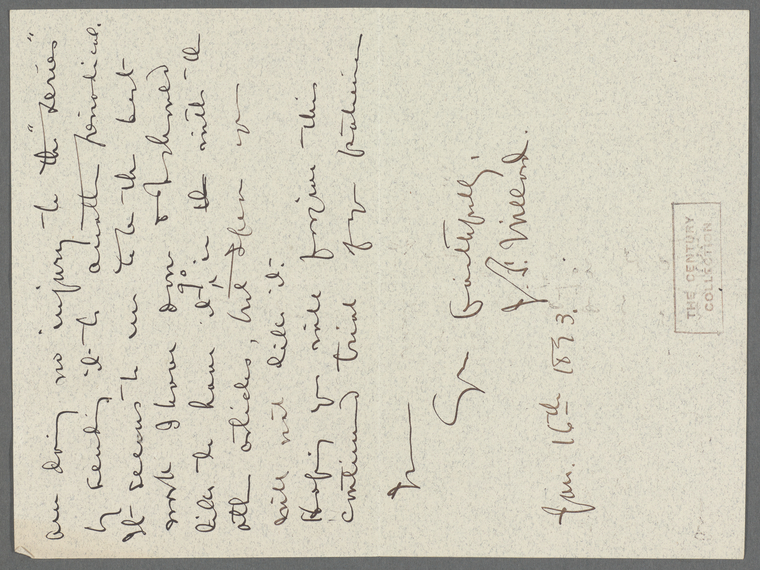 am doing no injury to the "series"
by sending it to another periodical.
It seems to me to be the best
work I have done & I should
like to have it go in with the
other articles, but often you
will not like it.
Hoping you will forgive this
continued trial of your patience
I am
Yours faithfully,
Jan. 16th 1893.
THE CENTURY
COLLECTION